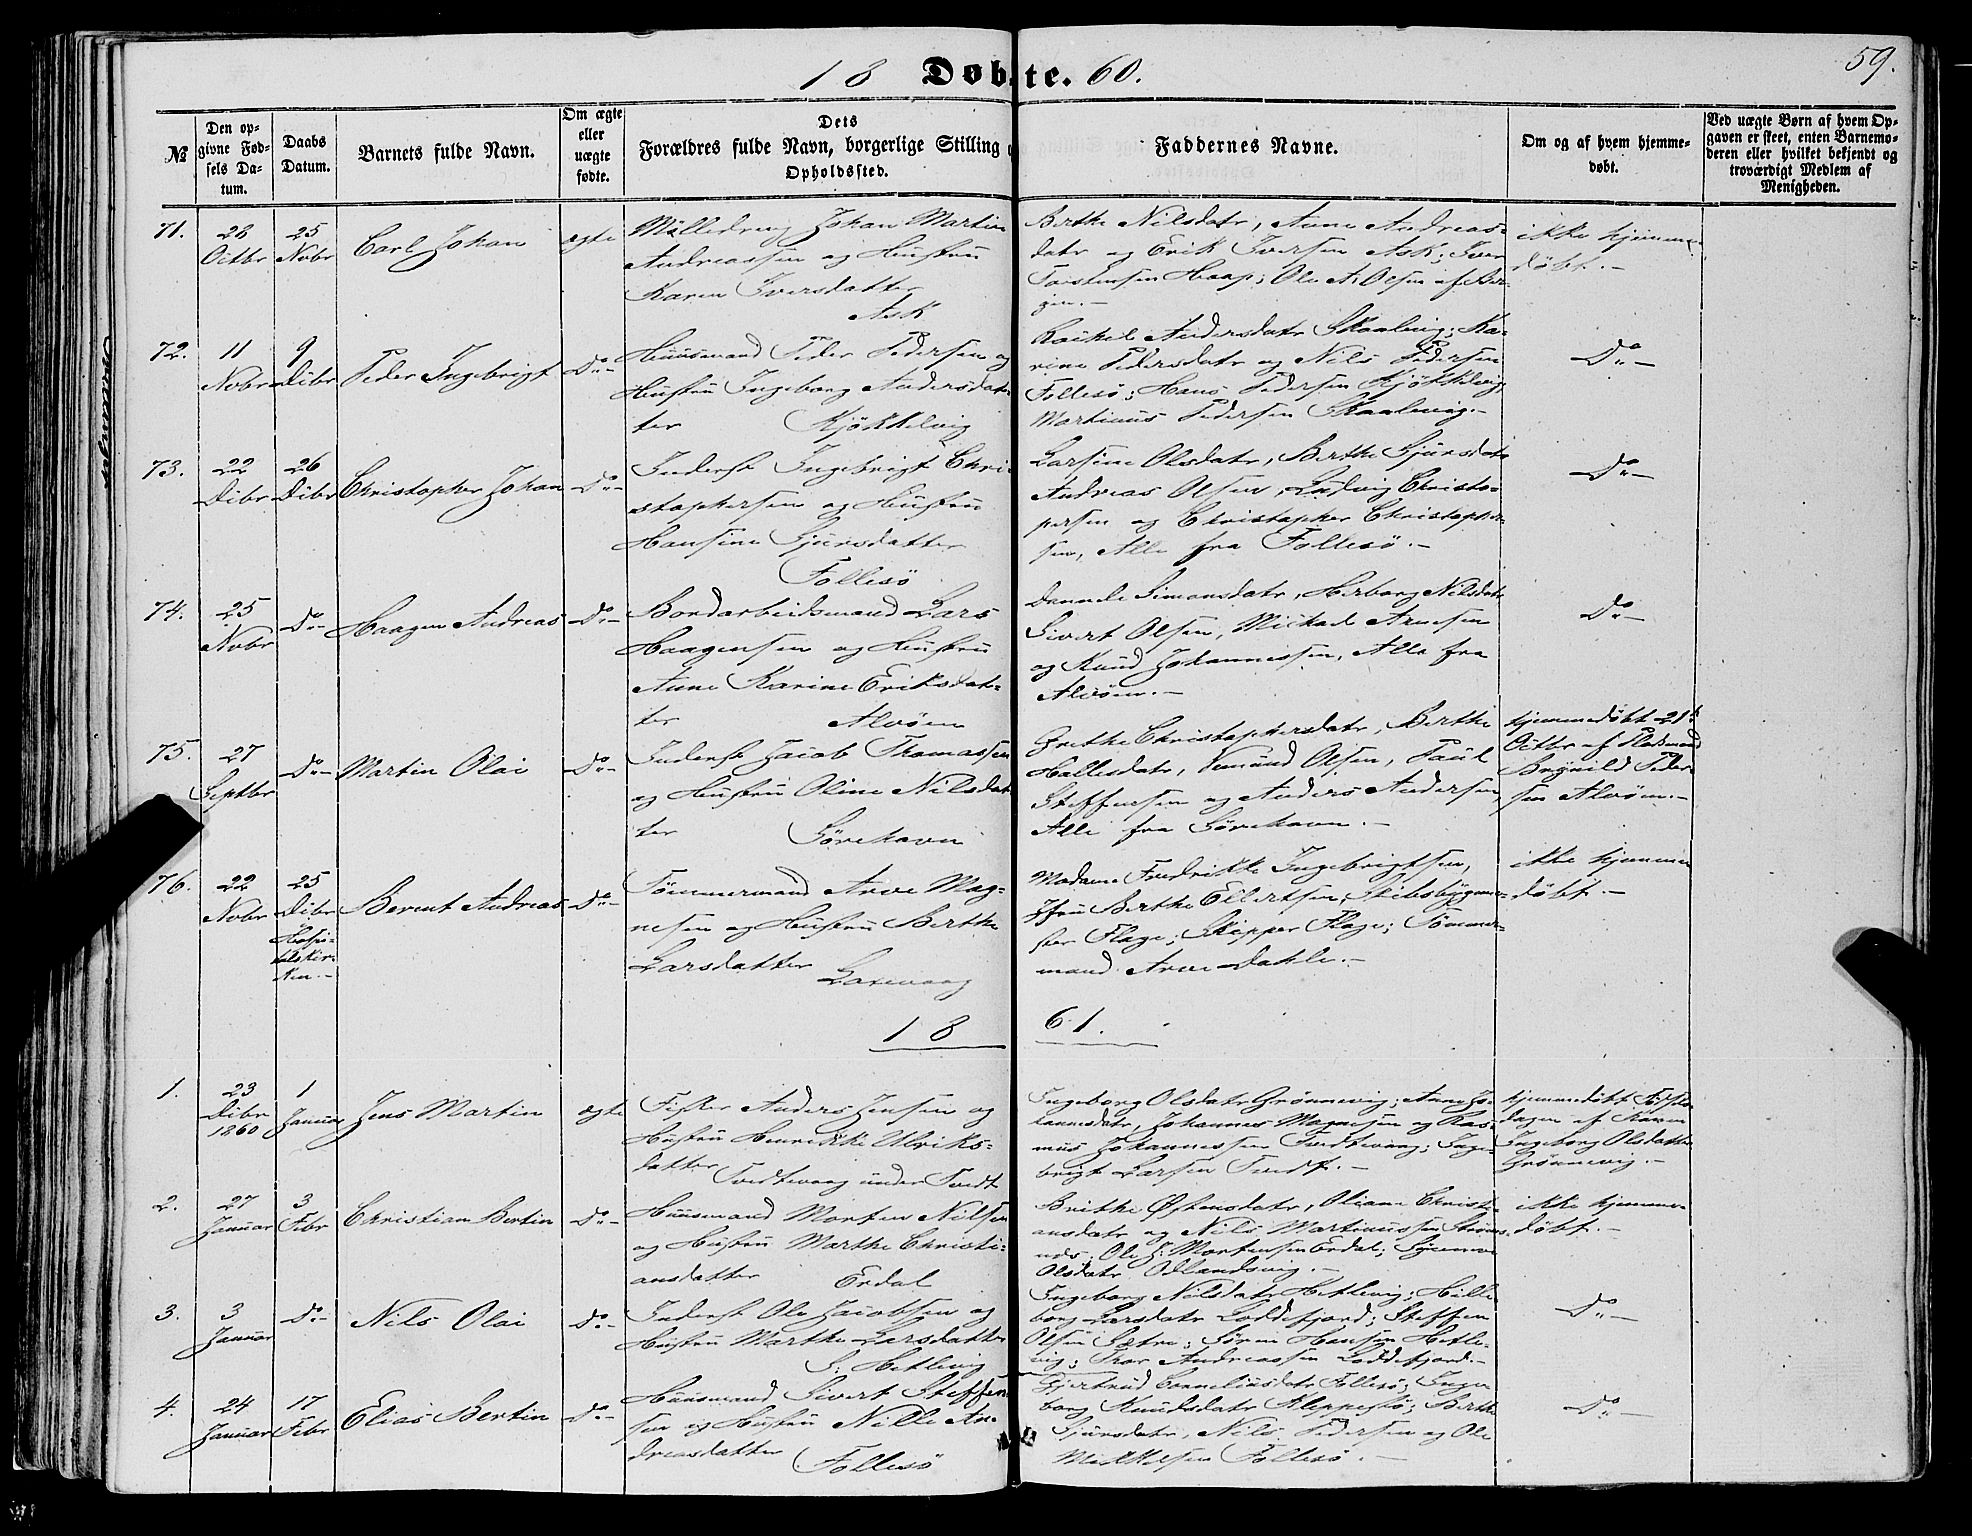 59.
18 Døbte. 60.
№
Den opgivne Fødsels Datum.
Daabs Datum.
Barnets fulde Navn.
Om ægte eller uægte fødte.
Dets Forældres fulde Navn, borgerlige Stilling o Opholdssted.
Faddernes Navne.
Om og af hvem hjemmedøbt.
Ved uægte Børn af hvem Opgaven er skeet, enten Barnemoderen eller hvilket bekjendt og troværdigt Medlem af Menigheden.
71.
28 Octbr
25 Novbr
Carl Johan
ægte
Mølledreng Johan Martin
Andreassen og Hustru
Karen Iversdatter
Ask
Berthe Nilsdatr, Anne Andreas-
datr og Erik Iversen Ask; Iver
Torstensen Haap; Ole A. Olsen af Ber-
gen.-
ikke hjemme-
døbt.-
72.
11 Novbr
9 Decbr
Peder Ingebrigt
Do-
Huusmand Peder Pedersen og
Hustru Ingeborg Andersdat-
ter Kjøkkelvig
Rachel Andersdatr Skaalevig; Ka-
rine Pedersdatr og Nils Pedersen
Follesø; Hans Pedersen Kjøkkelvig,
Martinus Pedersen Skaalevig.-
Do-
73.
22 Decbr
26 Decbr
Christopher Johan
Do-
Inderst Ingebrigt Chri-
stophersen og Hustru
Hansine Sjursdatter
Follesø
Larsine Olsdatr, Berthe Sjursdatr
Andreas Olsen, Ludvig Christo-
persen og Christopher Christopher-
sen, Alle fra Follesø.-
Do-
74.
25 Novbr
Do-
Haagen Andreas
Do-
Bordarbeidsmand Lars
Haagensen og Hustru
Anne Karine Eriksdat-
ter Alvøen
Simonsdatr, Herborg Nilsdatr
Sivert Olsen, Michael Arnesen
og Knud Johannessen, Alle fra
Alvøen.-
Do-
75.
27 Septbr
Do-
Martin Olai
Do-
Inderst Jacob Thomassen
og Hustru Oline Nilsdat-
ter Sørehavn
Grethe Christophersdatr, Berthe
Hallesdatr, Vemund Olsen, Paul
Steffensen og Anders Andersen,
Alle fra Sørehavn.-
hjemmedøbt 21de
Octbr af Pladsmand
Brynild Peder-
sen Alvøen.-
76.
22 Novbr
25 Decbr
Hospi-
talskir-
ken.-
Berent Andreas
Do-
Tømmermand Arve Mag-
nesen og Hustru Berthe
Larsdatter Laxevaag
Madame Fredrikke Ingebrigtsen,
Jfru Berthe Ellertsen, Skibsbygme-
ster Flage; Skipper Flage; Tømmer-
mand Arve Dahle.-
ikke hjemme
døbt.-
18 61.
1.
23 Decbr 1860
1 Januar
Jens Martin
ægte
Fisker Anders Jensen og
Hustru Henrikke Ulriks-
datter
Tvedtevaag under Tvedt
Ingeborg Olsdatr Grønnevig; Anne Jo-
hannesdatr, Johannes Magnesen og Ras-
mus Johannessen Tvedtevaag; Inge-
brigt Larsen Tvedt.-
hjemmedøbt Fødsels-
dagen af Konen
Ingeborg Olsdatter
Grønnevig.-
2.
27 Januar
3 Febr
Christian Bertin
Do-
Huusmand Morten Nilsen
og Hustru Marthe Christi-
ansdatter Erdal
Brithe Østensdatr, Oliane Christi-
ansdatr og Nils Martinussen Strøms-
nes; Ole J. Mortensen Erdal;
Olsdatr Odlandsvig.-
ikke hjemme-
døbt.-
3.
3 Januar
Do-
Nils Olai
Do-
Inderst Ole Jacobsen og
Hustru Marthe Larsdatter
S: Hetlevig
Ingeborg Nilsdatr Hetlevig; Hille-
borg Larsdatr Loddefjord; Steffen
Olsen Sætre; Søren Hansen Hetle-
vig; Thor Andreassen Loddefjord.-
Do-
4.
24 Januar
17 Febr
Elias Bertin
Do-
Huusmand Sivert Steffen-
sen og Hustru Nille An-
dreasdatter Follesø
Gjertrud Corneliusdatr Follesø; Inge-
borg Knudsdatr Kleppestø; Berthe
Sjursdatr, Nils Pedersen og Ole
Mikkelsen Follesø.-
Do-